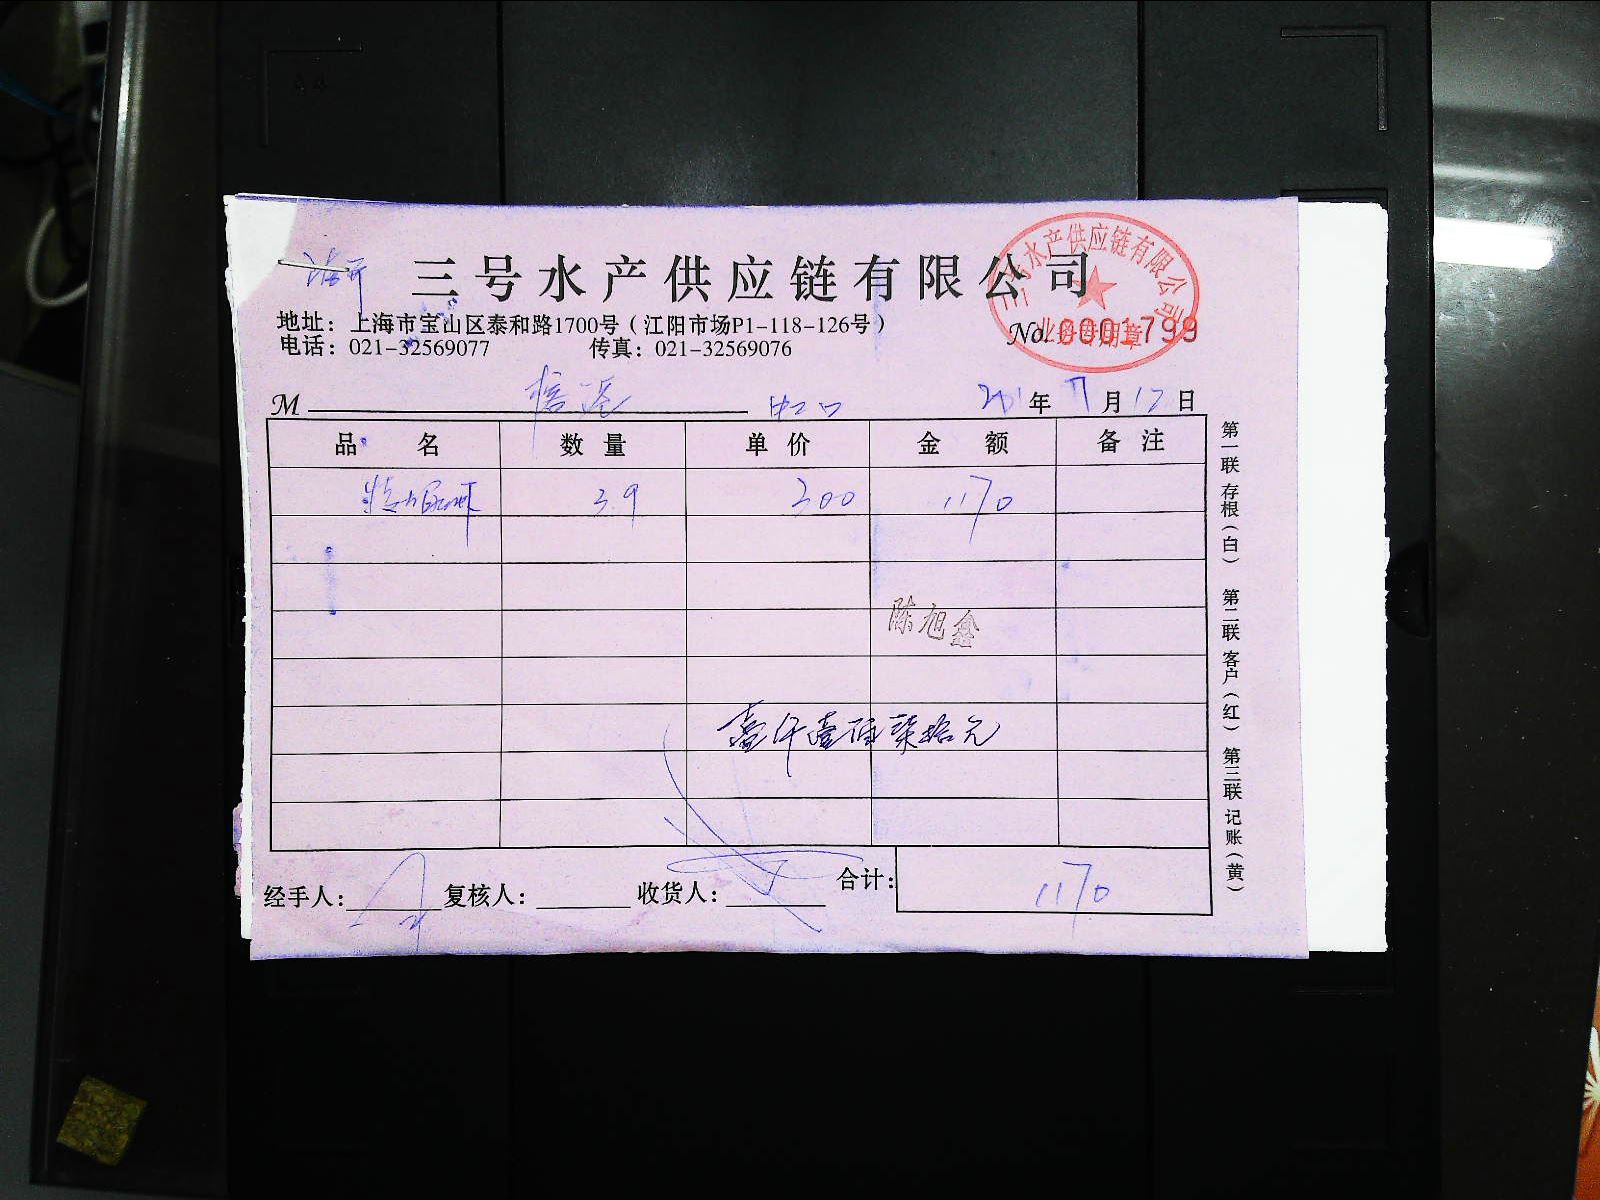 三号水产供应链有限公司
三号水产供应链有限公司
业务专用章
地址：上海市宝山区泰和路1700号（江阳市场P1-118-126号）
电话：021-32569077 传真：021-32569076
No. 0001799
M 虹口 年 月 日
品名 数量 单价 金额 备注
3.9 300 1170
陈旭鑫
壹仟壹佰柒拾元
经手人： 复核人： 收货人： 合计： 1170
第一联 存根（白） 第二联 客户（红） 第三联 记账（黄）